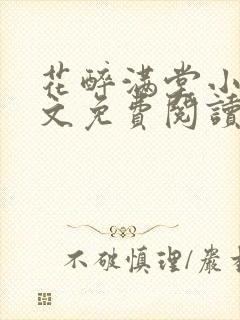 花醉满堂小
文免費閱讀
不破慎理/嚴